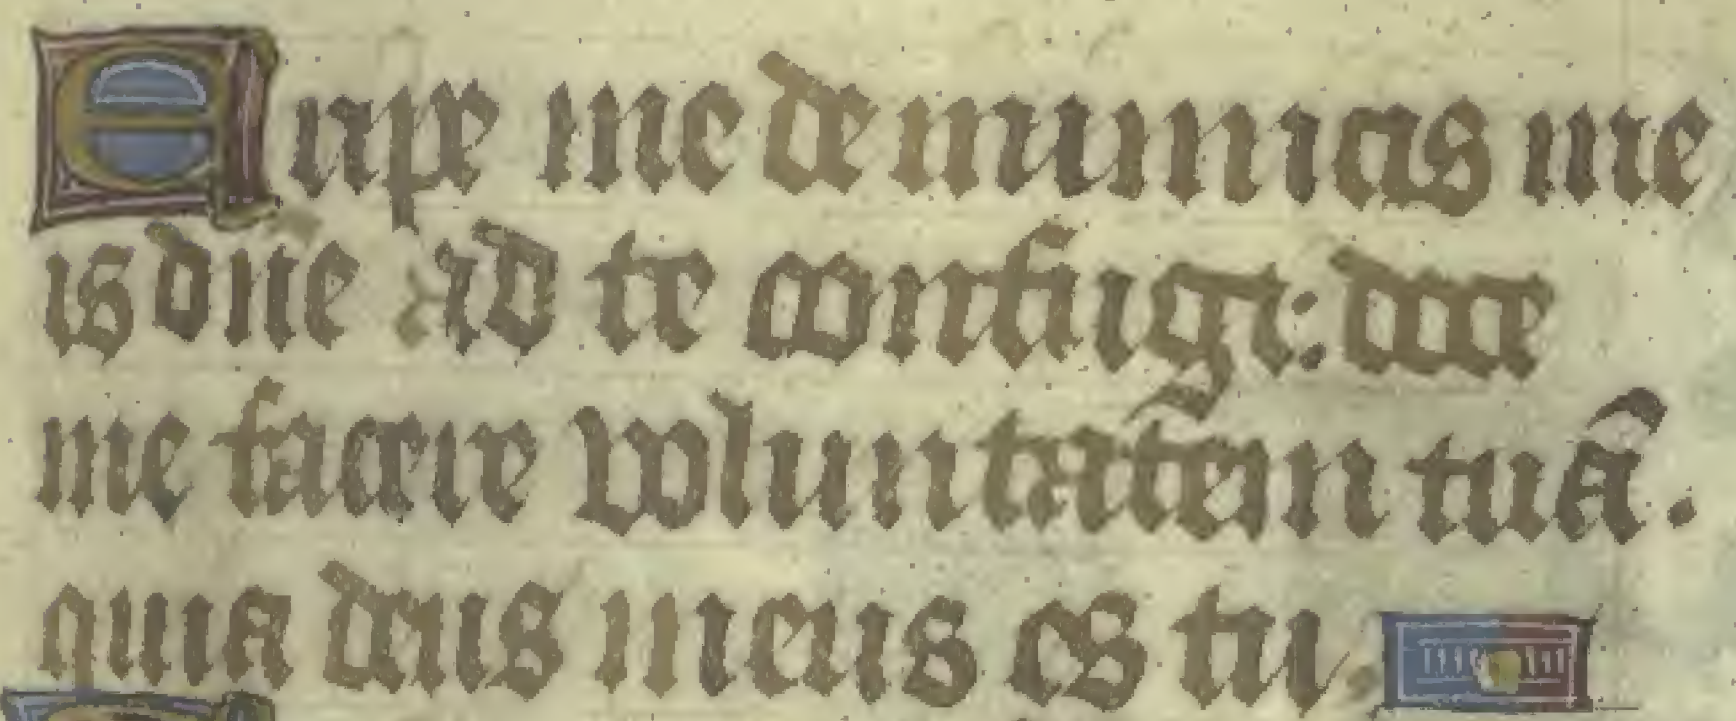 Eripe me de inimicis me
is dñe ad te confugi: doce
me facere voluntatem tuã.
quia deus meus es tu.